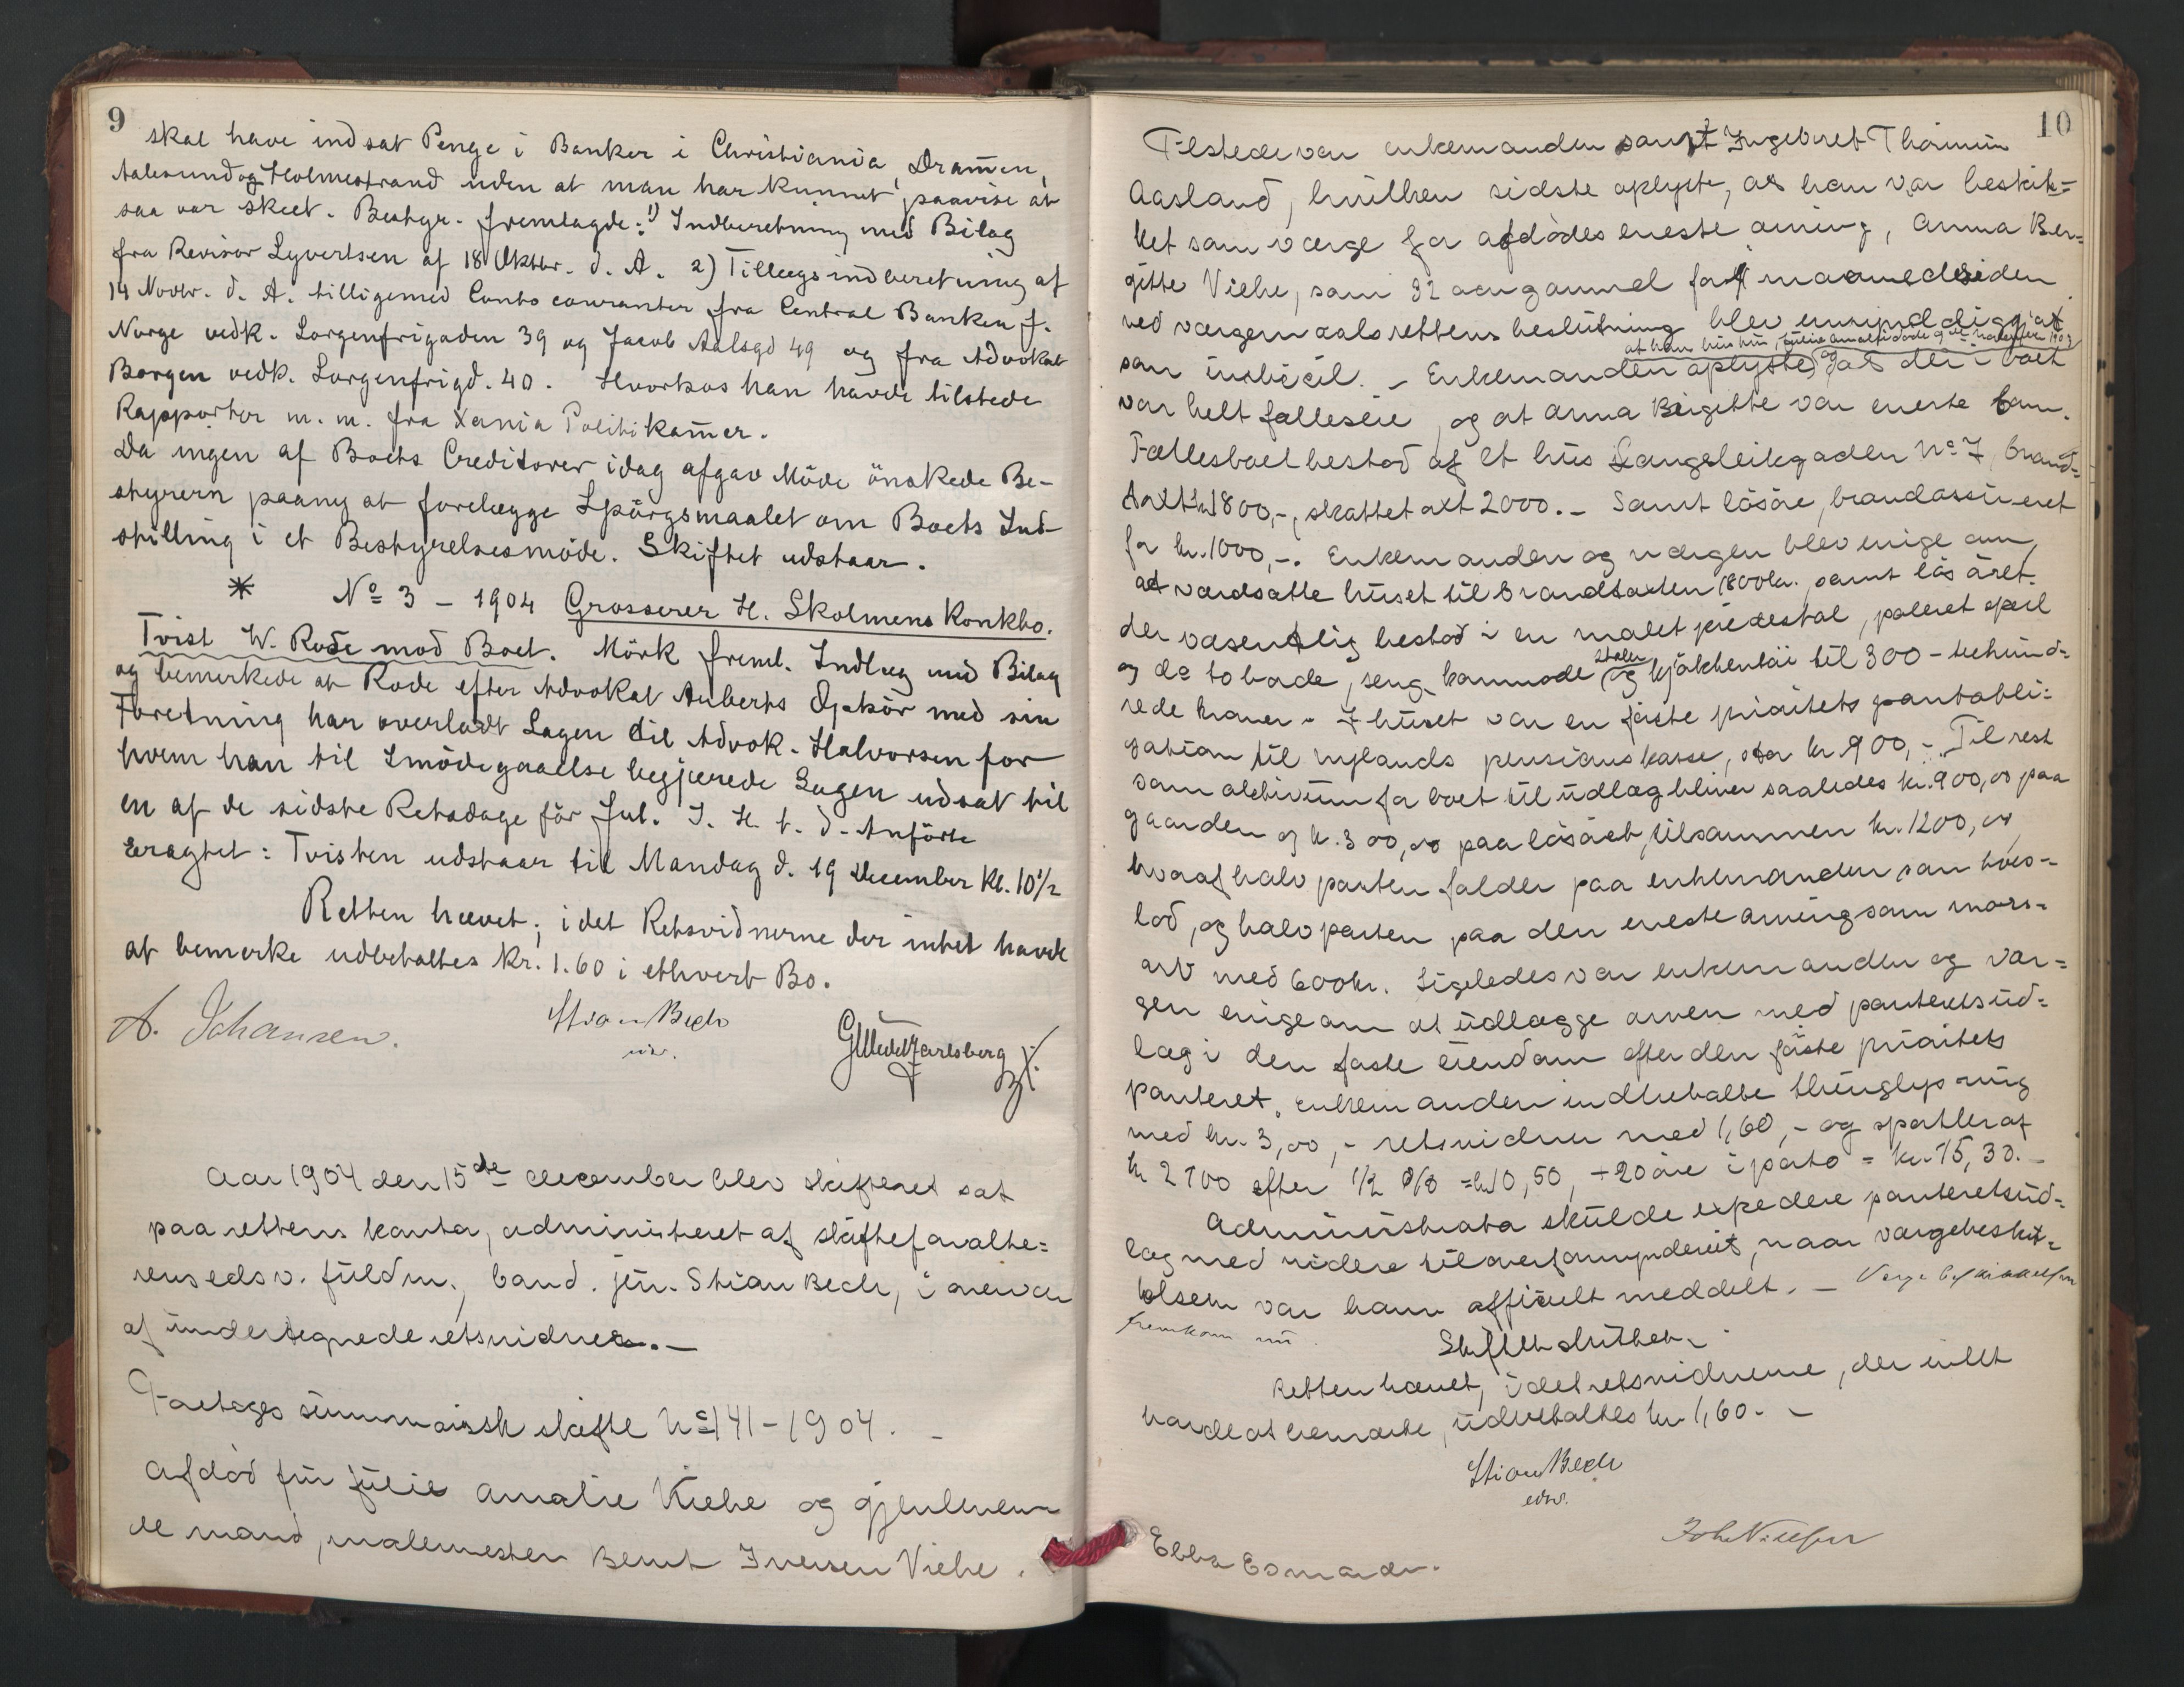 9
skal have indsat Penge i Banker i Christiania, Dramen,
Aalesund og Holmestrand uden at man har kunnet paavise at
saa var skeet. Bestyr. fremlagde: 1) Indberetning med Bilag
fra Revisor Syvertsen af 18 Oktbr. d. A. 2) Tillægsindberetning af
14 Novbr. d. A. tilligemed Conto couranter fra Central Banken f.
Norge vedk. Sorgenfrigaden 39 og Jacob Aalsgd 49 og fra Advokat
Borgen vedk. Sorgenfrigd. 40. Hvorhos han havde tilstede
Rapporter m. m. fra Xania Politikamer.
Da ingen af Boets Creditorer idag afgav Möde önskede Be-
styreren paany at forelægge Spörgsmaalet om Boets Ind-
stilling i et Bestyrelsesmöde. Skiftet udstaar.
* No 3 - 1904 Grosserer H. Skolmens Konkbo.
Tvist W. Rode mod Boet. Mörk freml. Indlæg med Bilag
og bemerkede at Rode efter Advokat Auberts Ophör med sin
Forretning har overladt Sagen til Advok. Halvorsen for
hvem han til Imödegaaelse begjærede Sagen udsat til
en af de sidste Retsdage för Jul. I. H. t. d. Anförte
Eragtet: Tvisten udstaar til Mandag d. 19 December Kl. 10½
Retten hævet; idet Retsvidnerne der intet havde
at bemerke udbetaltes Kr. 1.60 i ethvert Bo.
A. Johansen. Stian Bech
GWedelJarlsberg
Aar 1904 den 15de december blev skifteret sat
paa rettens kontor, administreret af skifteforvalte=
rens edsv. fuldm., cand. jur. Stian Bech, i nærvær
af undertegnede retsvidner. —
Foretoges summarisk skifte No 141-1904. —
Afdöd fru Julie Amalie Viehe og gjenleven
de mand, malermester Bernt Iversen Viehe.
10
Tilstede var enkemanden samt Ingebret Thorsen
Aasland, hvilken sidste oplyste, at han var beskik=
ket som værge for afdödes eneste arving, Anna Ber=
gitte Viehe, som 32 aar gammel for maaned siden
ved værgemaalsrettens beslutning blev umyndiggjort
at hans hustru, Julie Amalie döde 9de november 1903
som imbicil. - Enkemanden oplyste og at der i boet
var helt fælleseie, og at Anna Birgitte var eneste barn.
Fællesboet bestod af et hus Langeleikgaden No 7, brand=
takst kr 1800,-, skattetaxt 2000.- Samt lösöre, brandassureret
for kr. 1000,-. Enkemanden og værgen blev enige om,
at værdsætte huset til brandtaxten 1800 kr. samt lösöret
der væsentlig bestod i en malet piedestal, poleret speil
og do to borde, seng, kommode stoler og kjökkentöi til 300 - trehund=
rede kroner - I huset var en förste prioritets pantobli=
gation til Nylands pensionskasse, stor kr. 900,-. Til rest
som aktivum for boet til udlæg bliver saaledes kr. 900,00 paa
gaarden og kr. 300,00 paa lösöret, tilsammen kr. 1200,00,
hvoraf halvparten falder paa enkemanden som boes-
lod, og halvparten paa den eneste arving som mors-
arv med 600 kr. Ligeledes var enkemanden og vær=
gen enige om at udlægge arven med panteretsud=
læg i den faste eiendom efter den förste prioritets
panteret. Enkemanden indbetalte thinglysning
med kr. 3,00,- retsvidner med 1,60,- og sportler af
kr 2100 efter 1/2 % = kr 10,50, + 20 öre i porto = kr. 15,30. —
Administrator skulde expedere panteretsud=
læg med videre til overformynderiet, naar værgebeskik=
kelsen var ham officielt meddelt. — Værgebeskikkelsen
fremkom nu.
Skiftet sluttet. -
Retten hævet, idet retsvidnerne, der intet
havde at bemærke, udbetaltes kr 1,60. -
Stian Bech
edsv.
Joh Nilssen
Ebba Esmarch.